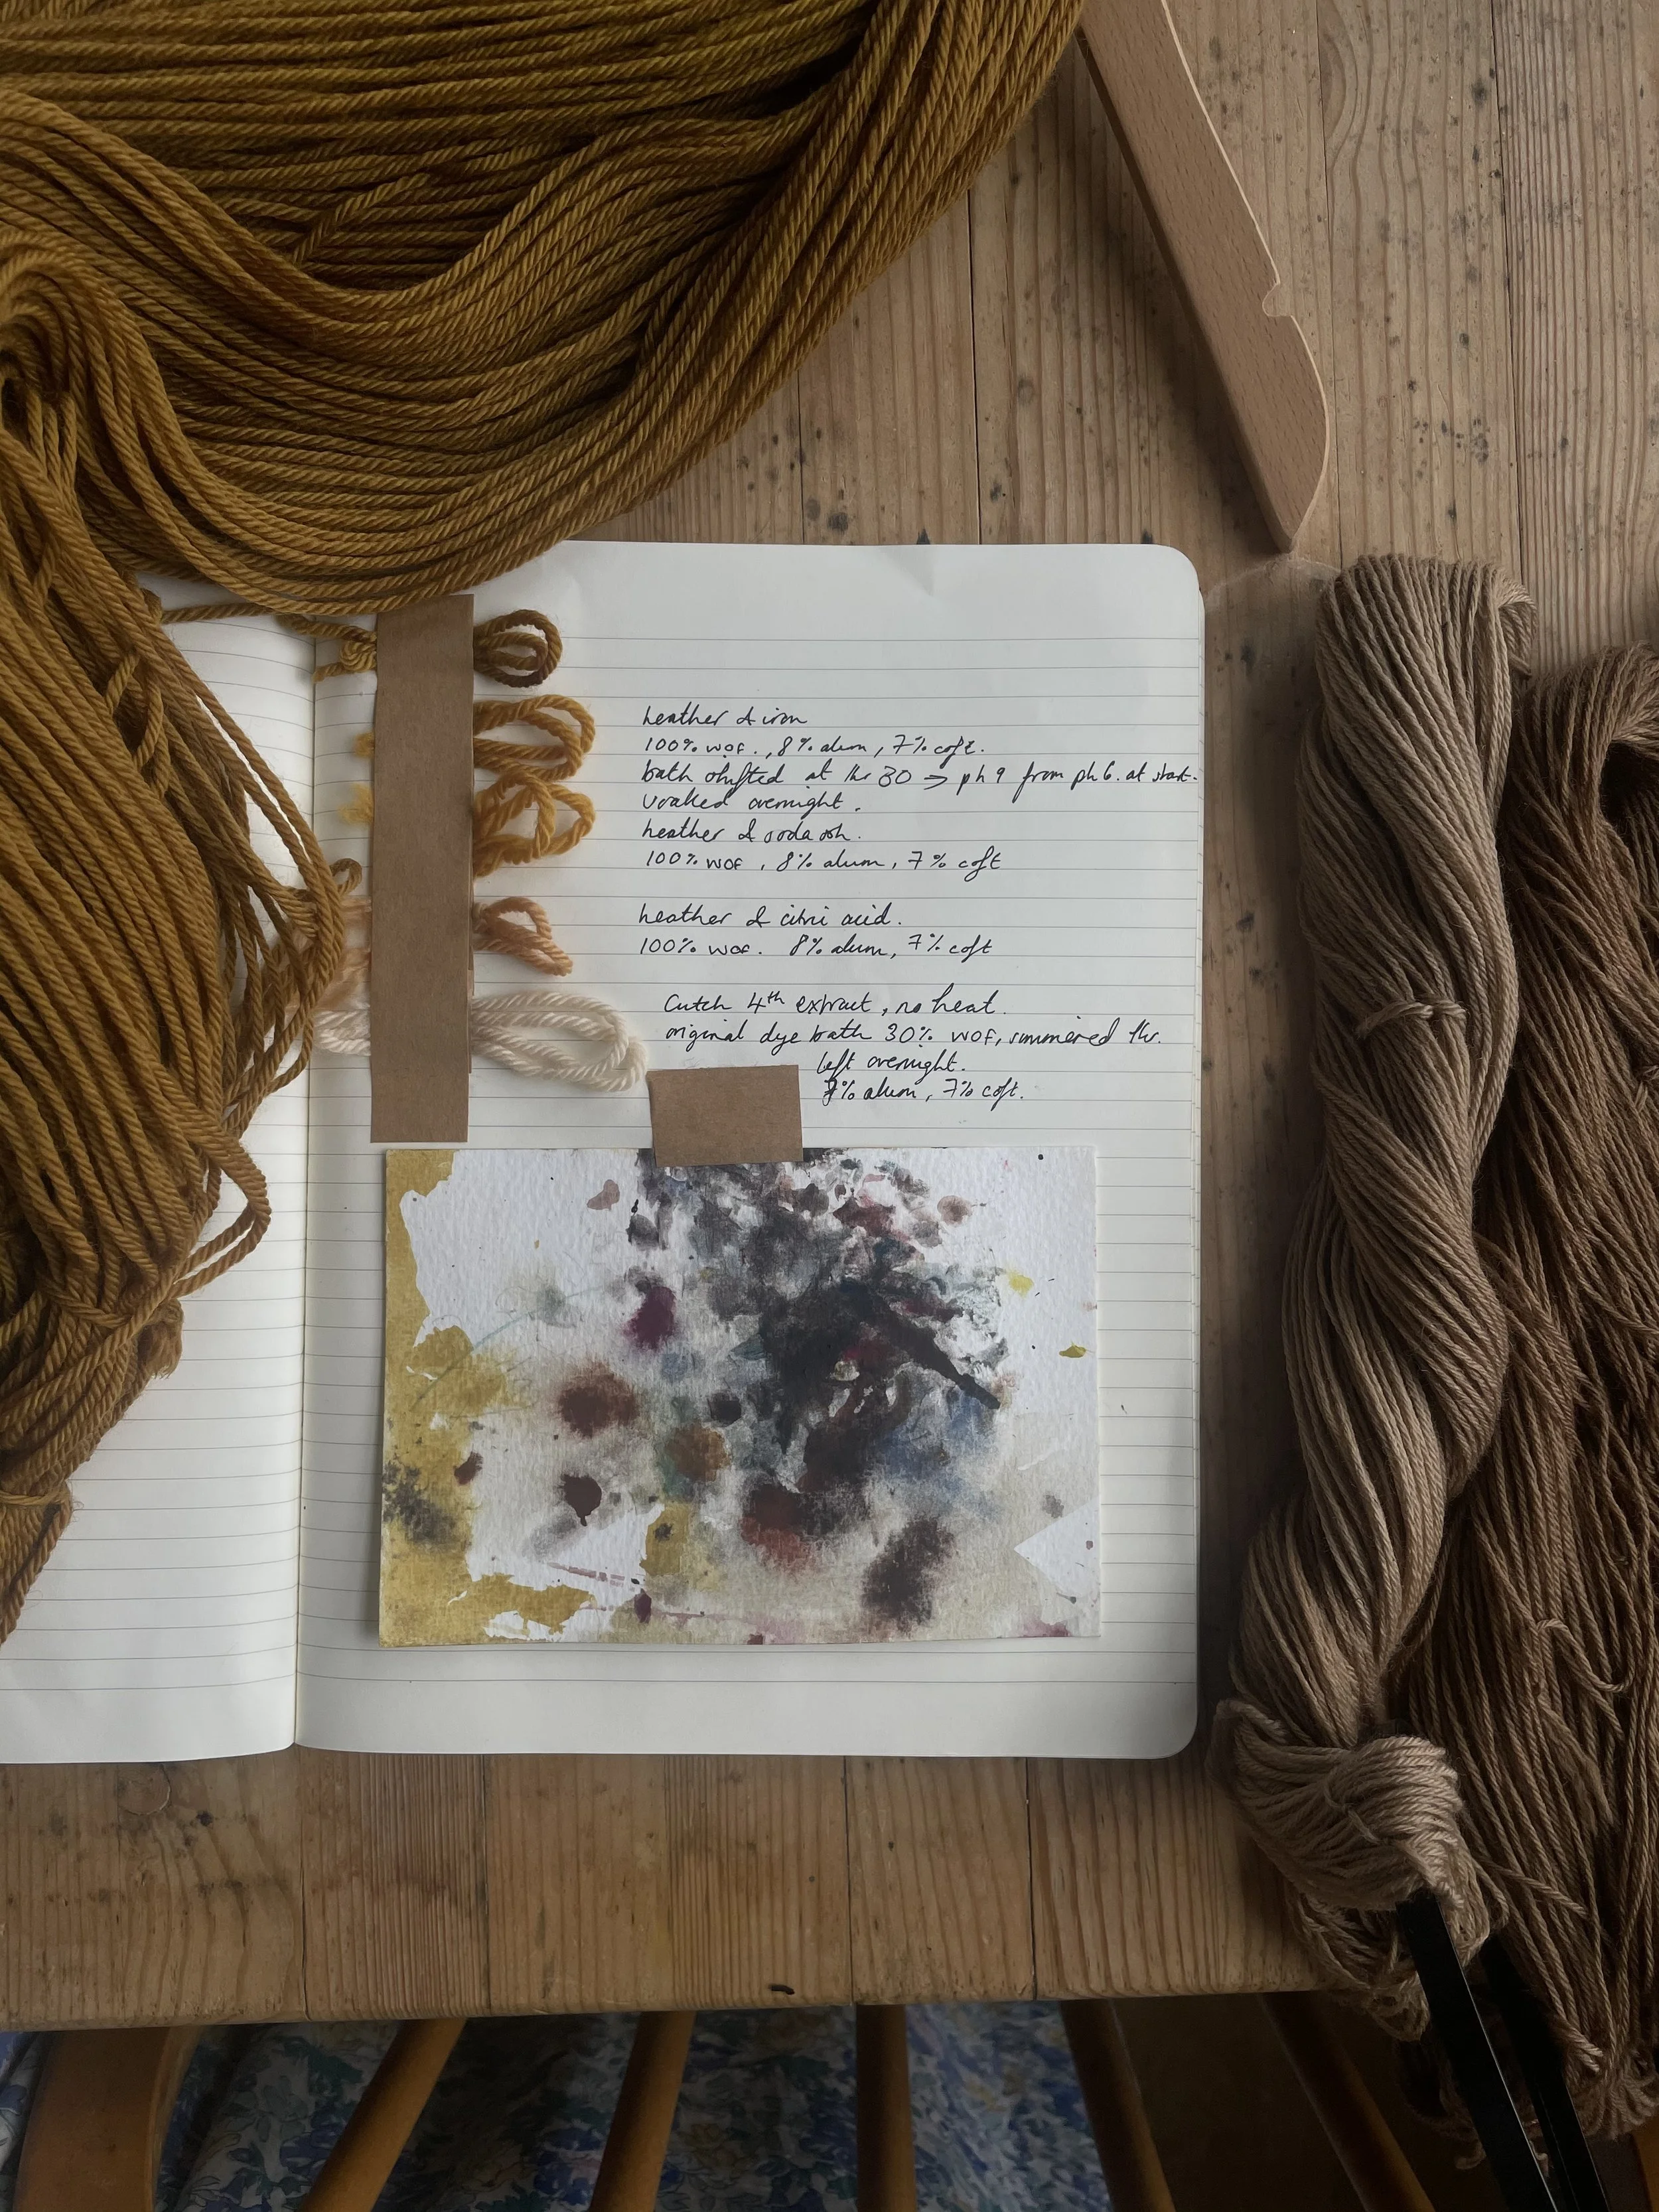 heather & iron
100% wof., 8% alum, 7% coft.
bath shifted at 1hr 30 → ph 9 from ph 6. at start.
soaked overnight.
heather & soda ash.
100% wof, 8% alum, 7% coft
heather & citric acid.
100% wof. 8% alum, 7% coft
Cutch 4th extract, no heat.
original dye bath 30% wof, simmered 1hr.
left overnight.
7% alum, 7% coft.